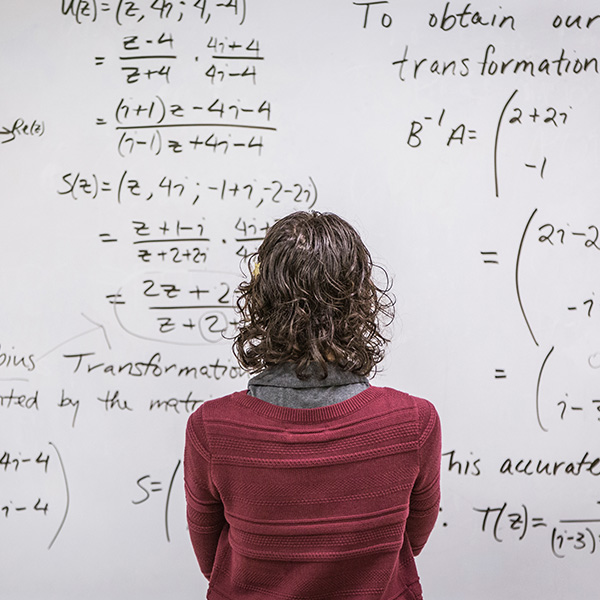 U(z)=(z, 4i; 4, -4)
= z-4/z+4 · 4i+4/4i-4
= (i+1)z-4i-4/(i-1)z+4i-4
→Re(z)
S(z)=(z, 4i; -1+i, -2-2i)
= z+1-i/z+2+2i · 4i+
= 2z+2/z+2
Transformation
by the
4i-4
i-4
S=(
To obtain our
transformation
B⁻¹A= (2+2i
-1
= (2i-2
-i
= (
i-3
his accurate
: T(z)=
(i-3)